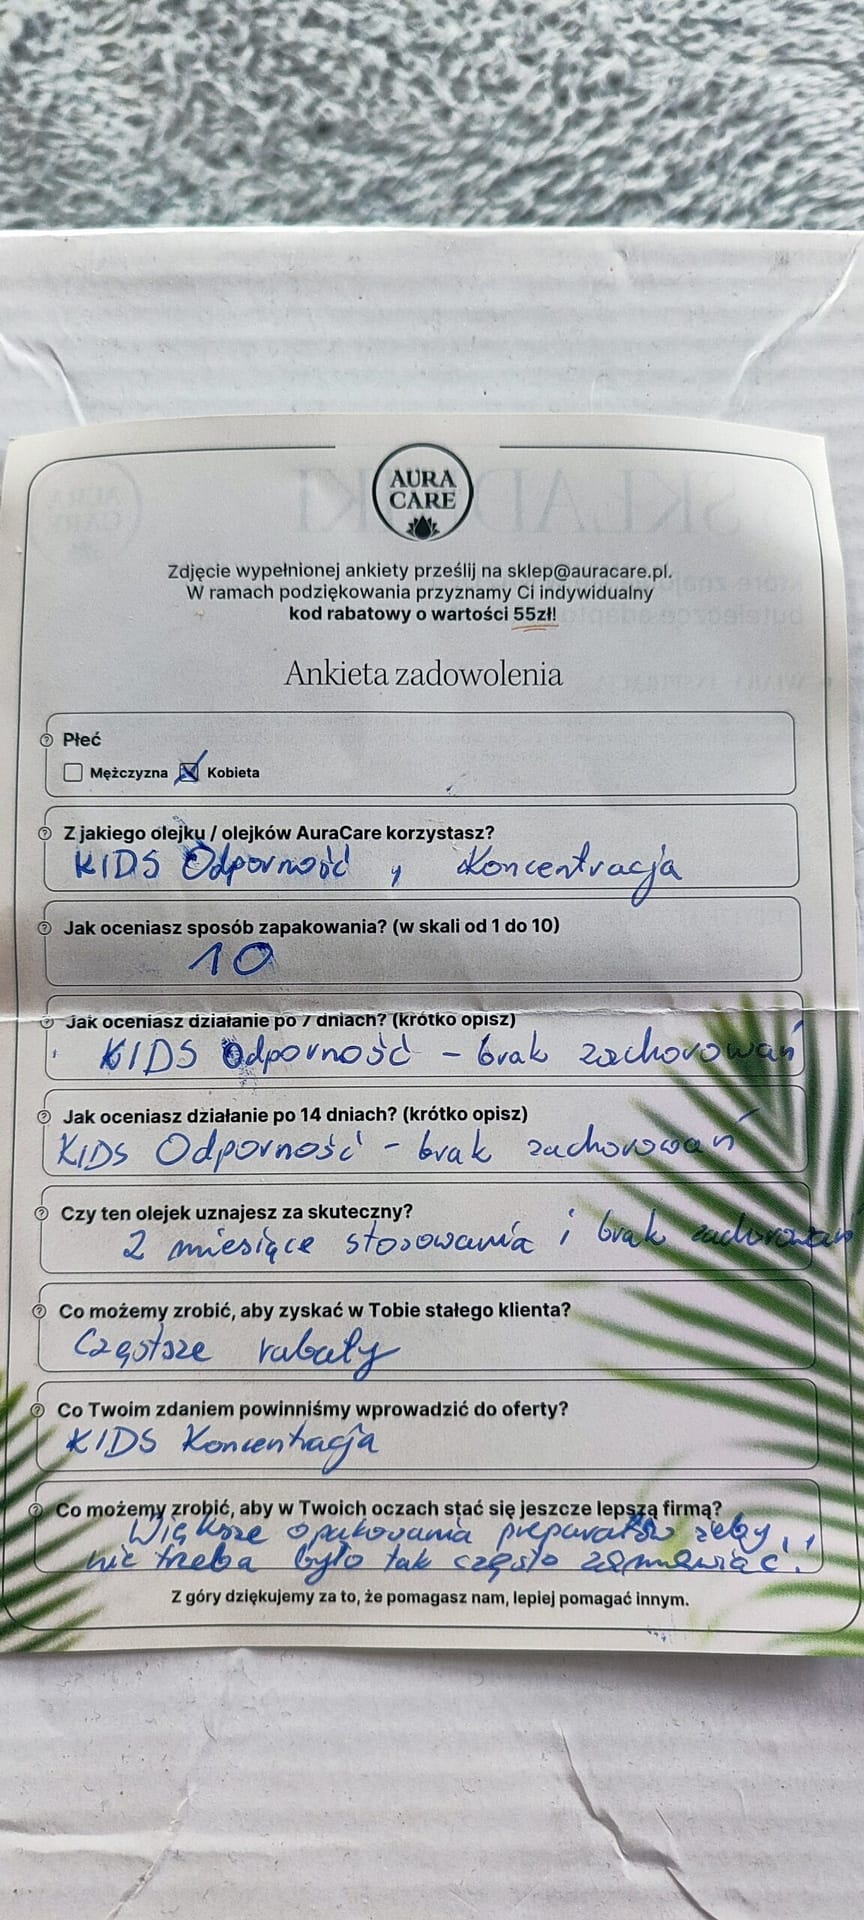 AURA
CARE
Zdjęcie wypełnionej ankiety prześlij na sklep@auracare.pl.
W ramach podziękowania przyznamy Ci indywidualny
kod rabatowy o wartości 55zł!
Ankieta zadowolenia
Płeć
Mężczyzna Kobieta
Z jakiego olejku / olejków AuraCare korzystasz?
KIDS Odporność, Koncentracja
Jak oceniasz sposób zapakowania? (w skali od 1 do 10)
10
Jak oceniasz działanie po 7 dniach? (krótko opisz)
KIDS Odporność - brak zachorowań
Jak oceniasz działanie po 14 dniach? (krótko opisz)
KIDS Odporność - brak zachorowań
Czy ten olejek uznajesz za skuteczny?
2 miesiące stosowania i brak zachorowań
Co możemy zrobić, aby zyskać w Tobie stałego klienta?
Częstsze rabaty
Co Twoim zdaniem powinniśmy wprowadzić do oferty?
KIDS Koncentracja
Co możemy zrobić, aby w Twoich oczach stać się jeszcze lepszą firmą?
Większe opakowania preparatów żeby
nie trzeba było tak często zamawiać.
Z góry dziękujemy za to, że pomagasz nam, lepiej pomagać innym.